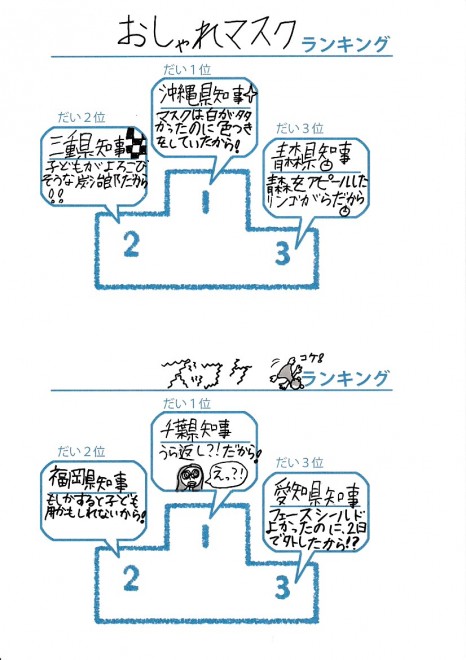 おしゃれマスク ランキング
だい1位
沖縄県知事
マスクは白が多
かったのに色つき
をしていたから!
だい2位
三重県知事
子どもがよろこび
そうな炭治郎だから
!!
だい3位
青森県知事
青森をアピールした
リンゴがらだから
1
2
3
ズッコケ ランキング
コケ!
だい1位
千葉県知事
うら返し?!だから!
えっ?!
だい2位
福岡県知事
もしかすると子ども
用かもしれないから!
だい3位
愛知県知事
フェースシールド
よかったのに、2日
で外したから!?
1
2
3